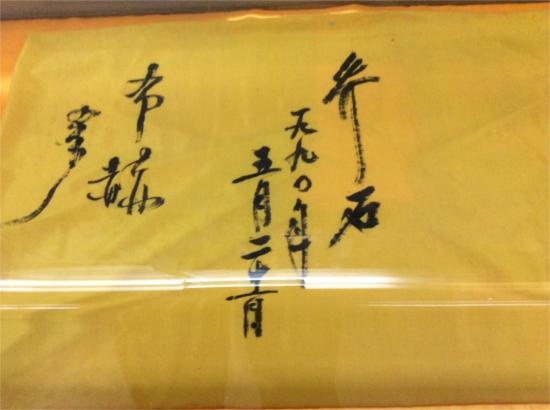 乔石
一九九〇年
五月二十一日
布赫